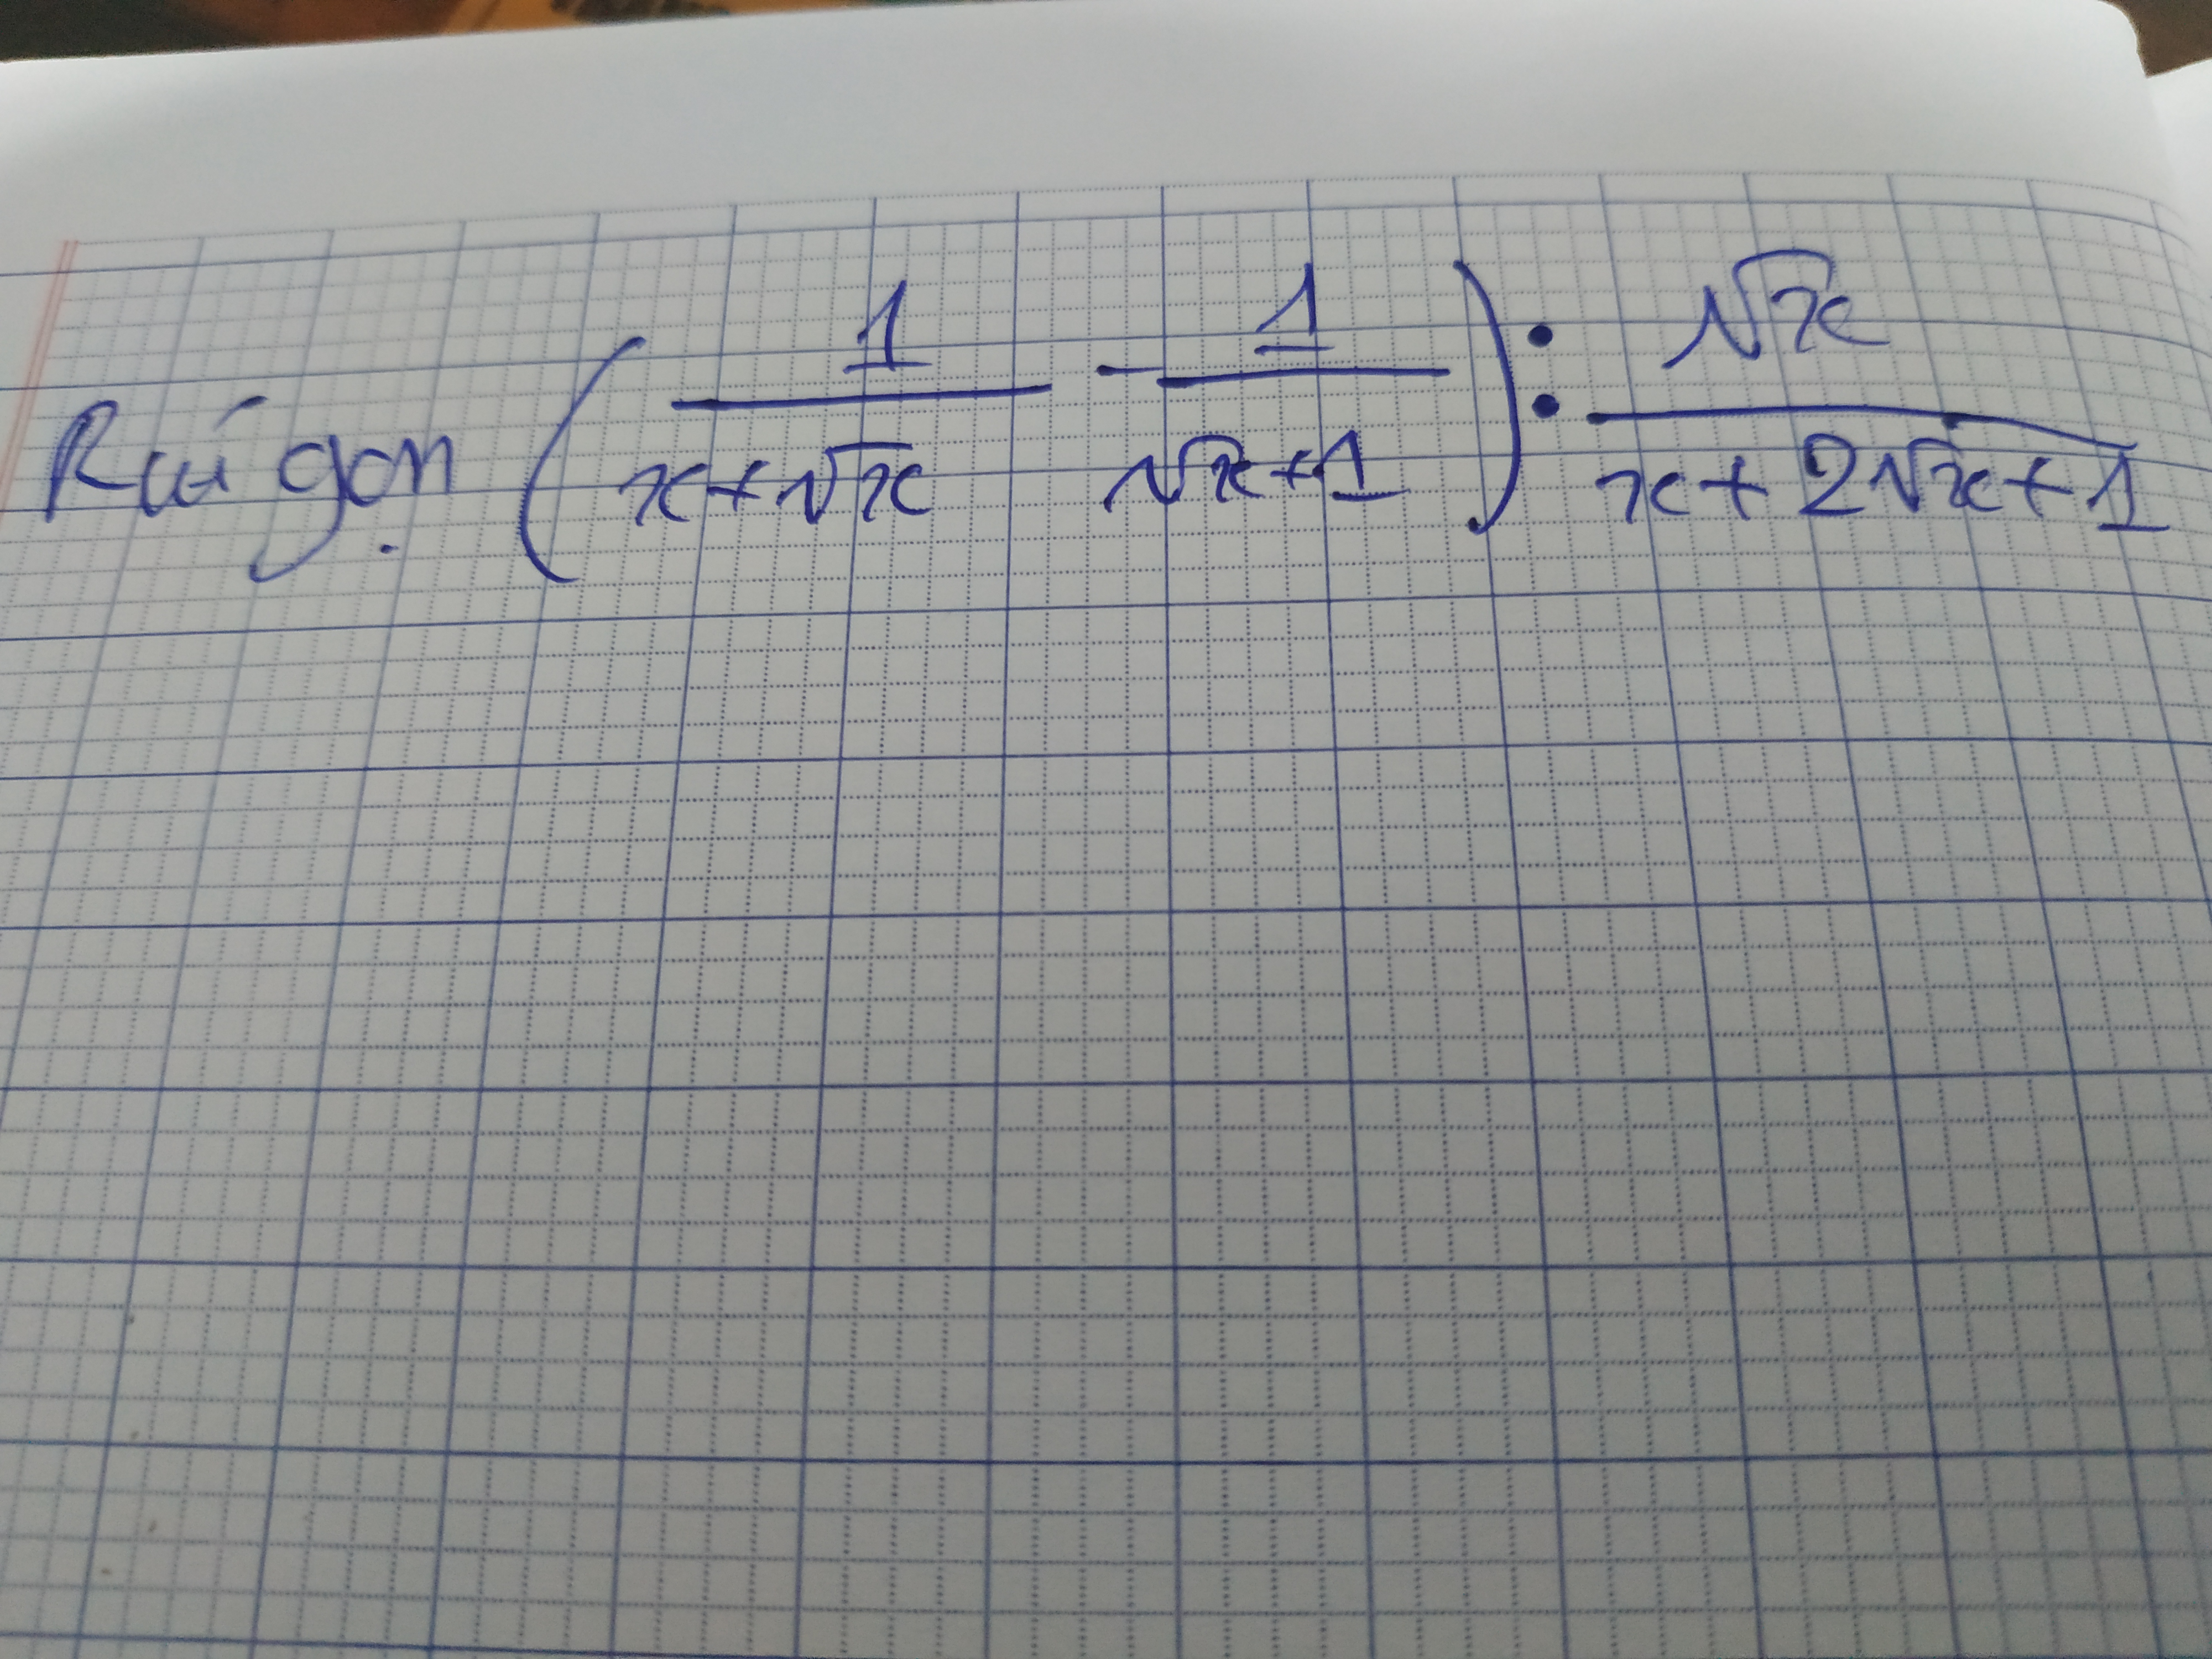 Rút gọn (1/(x+√x) - 1/(√x+1)) : √x/(x+2√x+1)